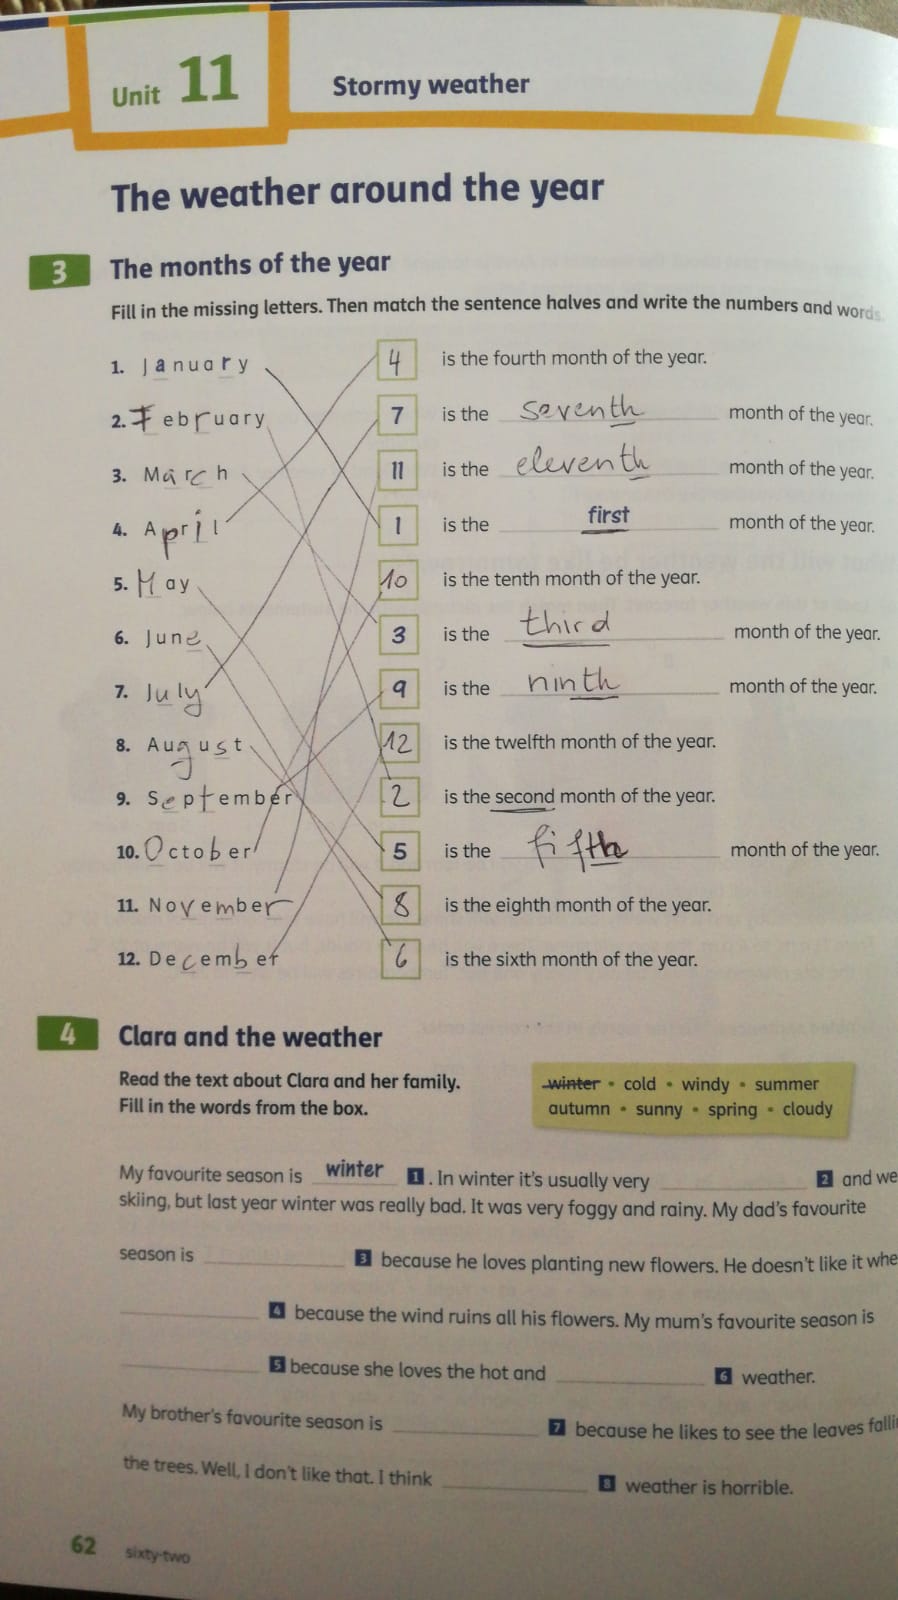 Unit 11
Stormy weather
The weather around the year
3 The months of the year
Fill in the missing letters. Then match the sentence halves and write the numbers and words.
1. January 4 is the fourth month of the year.
2. February 7 is the seventh month of the year.
3. March 11 is the eleventh month of the year.
4. April 1 is the first month of the year.
5. May 10 is the tenth month of the year.
6. June 3 is the third month of the year.
7. July 9 is the ninth month of the year.
8. August 12 is the twelfth month of the year.
9. September 2 is the second month of the year.
10. October 5 is the fifth month of the year.
11. November 8 is the eighth month of the year.
12. December 6 is the sixth month of the year.
4 Clara and the weather
Read the text about Clara and her family.
Fill in the words from the box.
winter • cold • windy • summer
autumn • sunny • spring • cloudy
My favourite season is winter 1. In winter it's usually very 2 and we
skiing, but last year winter was really bad. It was very foggy and rainy. My dad's favourite
season is 3 because he loves planting new flowers. He doesn't like it whe
4 because the wind ruins all his flowers. My mum's favourite season is
5 because she loves the hot and 6 weather.
My brother's favourite season is 7 because he likes to see the leaves falli
the trees. Well, I don't like that. I think 8 weather is horrible.
62 sixty-two